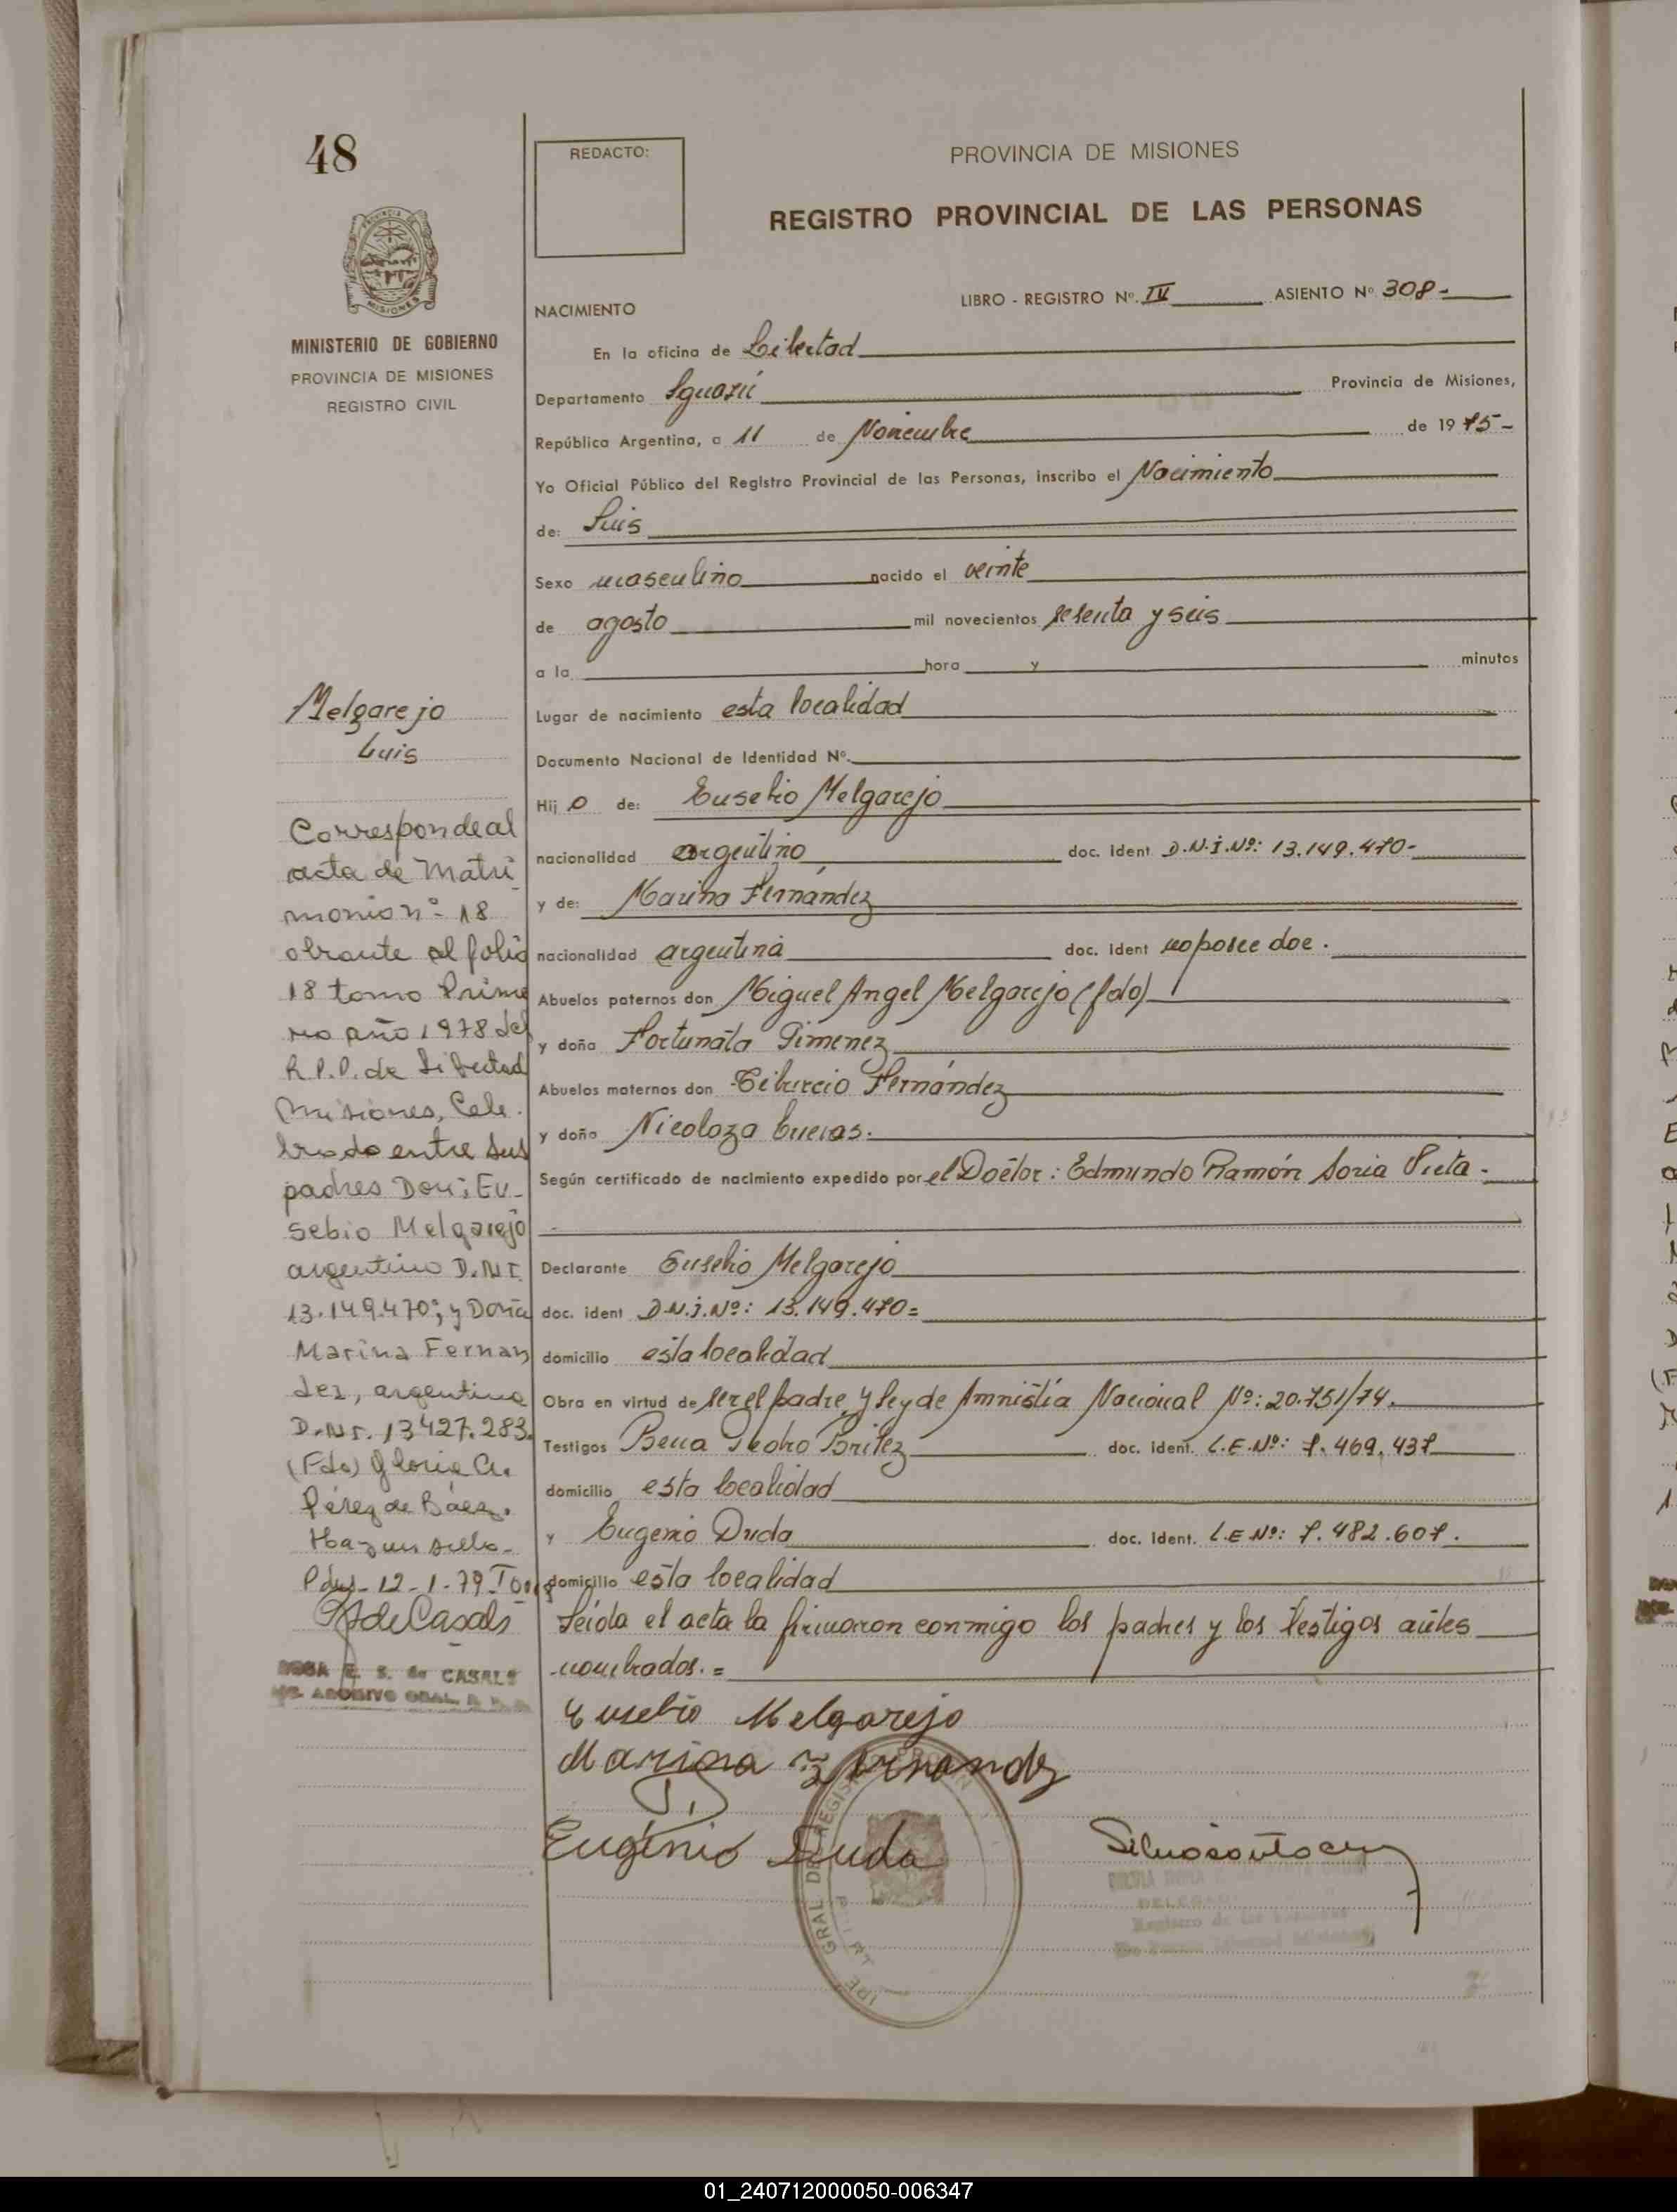 48
PROVINCIA DE
MISIONES
MINISTERIO DE GOBIERNO
PROVINCIA DE MISIONES
REGISTRO CIVIL
REDACTO:
PROVINCIA DE MISIONES
REGISTRO PROVINCIAL DE LAS PERSONAS
LIBRO - REGISTRO Nº. IV ASIENTO Nº 308-
NACIMIENTO
En la oficina de Libertad
Departamento Iguazú Provincia de Misiones,
República Argentina, a 11 de Noviembre de 1975-
Yo Oficial Público del Registro Provincial de las Personas, inscribo el Nacimiento
de: Luis
Sexo masculino nacido el veinte
de agosto mil novecientos sesenta y seis
a la hora y minutos
Lugar de nacimiento esta localidad
Documento Nacional de Identidad Nº.
Hijo de: Eusebio Melgarejo
nacionalidad argentino doc. ident D.N.I.Nº: 13.149.470-
y de: Marina Fernández
nacionalidad argentina doc. ident no posee doc.
Abuelos paternos don Miguel Angel Melgarejo (fdo)
y doña Fortunata Gimenez
Abuelos maternos don Tiburcio Fernández
y doña Nicolaza Cuevas.
Según certificado de nacimiento expedido por el Doctor: Edmundo Ramón Soria Vieta-
Declarante Eusebio Melgarejo
doc. ident D.N.I.Nº: 13.149.470=
domicilio esta localidad
Obra en virtud de ser el padre y ley de Amnistía Nacional Nº: 20.751/74.
Testigos Pedro Britez doc. ident. L.E.Nº: 7.469.437
domicilio esta localidad
y Eugenio Duda doc. ident. L.E Nº: 7.482.607.
domicilio esta localidad
Leída el acta la firmaron conmigo los padres y los testigos antes
nombrados.=
Eusebio Melgarejo
Marina Fernandez
Eugenio Duda
DELEGADA
Registro de las Personas
Melgarejo
Luis
Corresponde al
acta de Matri
monio nº 18
obrante al folio
18 tomo Prime
ro año 1978 del
R.P.P. de Libertad
Misiones, Cele.
brado entre sus
padres Don: Eu-
sebio Melgarejo
argentino D.N.I.
13.149.470; y Doña
Marina Fernan
dez, argentina
D.N.I. 13427.283.
(Fdo) Gloria A.
Pérez de Báez.
Hay un sello-
Pdas- 12-1-79
de Casals
ROSA E. S. de CASALS
ARCHIVO GRAL. R. P. P.
01_240712000050-006347